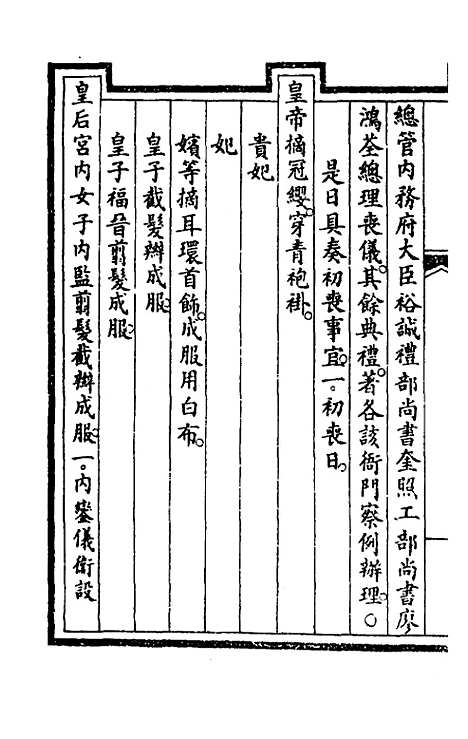 總管内務府大臣裕誠禮部尚書奎照工部尚書廖
鴻荃總理喪儀。其餘典禮。著各該衙門察例辦理。〇
是日具奏初喪事宜。一。初喪日。
皇帝摘冠纓。穿青袍褂。
貴妃
妃
嬪等摘耳環首飾。成服用白布。
皇子截髮辮成服。
皇子福晉剪髮成服。
皇后宮内女子内監剪髮截辮成服。一。内鑾儀衛設